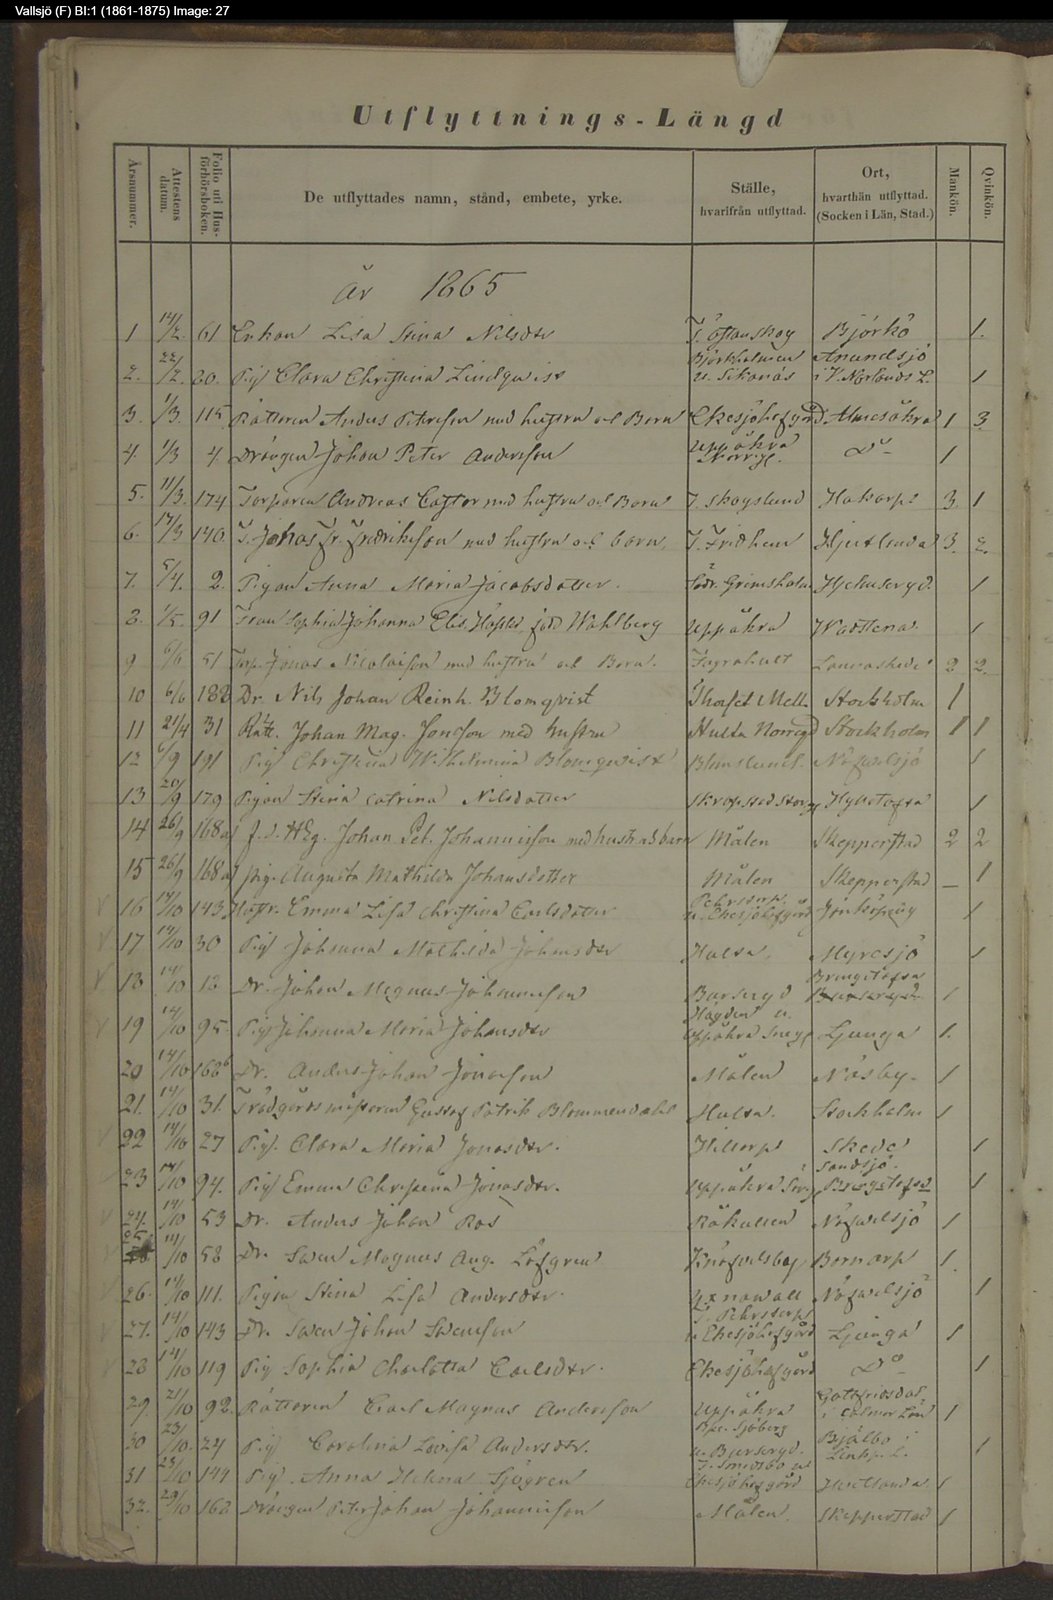 Vallsjö (F) BI:1 (1861-1875) Image: 27
Utflyttnings-Längd
Årsnummer. Attestens datum. Folio uti Hus-förhörsboken. De utflyttades namn, stånd, embete, yrke. Ställe, hvarifrån utflyttad. Ort, hvarthän utflyttad. (Socken i Län, Stad.) Mankön. Qvinkön.
år 1865
1 14/2. 61 Enkan Lisa Stina Nilsdtr T. Östanskog Björkö 1.
2. 22/2. 20. Pig Clara Christina Lindqwist Björkholmen u. Sikanäs Anundsjö i V. Norlands L. 1
3. 1/3. 115. Rättaren Anders Peterson med hustru och Barn Ekesjöhofgård Almesåkra 1 3.
4. 1/3 4. Drängen Johan Peter Anderson Uppåkra Norrg. Do 1
5. 11/3. 174 Torparen Andreas Castor med hustru och Barn T. Skogslund Hakarps 3. 1
6. 17/3 140. T. Johas Fr. Fredrikson med hustru och barn. T. Fridhem Hjertlanda 3. 2.
7. 5/4. 2. Pigan Anna Maria Jacobsdotter. Södr. Grimsholm Hjelmseryd. 1
8. 1/5. 91 Fru Sophia Johanna Elis. född Wahlberg Uppåkra Wadstena. 1
9 6/6 51 Torp. Jonas Nicolaison med hustru och Barn. Fagrahult Lannaskede 2 2.
10 6/6 182 Dr. Nils Johan Reinh. Blomqvist Thorset Mell. Stockholm 1
11 21/4 31 Rätt. Johan Mag. Jonsson med hustru Hulta Norrgd Stockholm 1 1
12 6/9 191 Pig Christina Wilhelmina Blomqwist Näfwelsjö 1
13 20/9 179 Pigan Stina Catrina Nilsdotter Skrapstad Storg Hyltetofta 1
14 26/9 168a f.d. HEg. Johan Pet. Johannisson med hustr och barn Målen Skepperstad 2 2
15 26/9 168a pig. Augusta Mathilda Johansdotter Målen Skepperstad — 1
16 14/10 143. Emma Lisa Christina Carlsdotter Pehrstorp u. Ekesjöhofgård Jönköping 1
17 14/10 30 Pig Johanna Mathilda Johansdtr Hulta. Myresjö 1
18 14/10 12 Dr. Johan Magnus Johannisson Bursery d Bringetofta 1
19 14/10 95. Pig Johanna Maria Johansdtr Högden u. Uppåkra Ljunga 1.
20 14/10 168b Dr. Anders Johan Jonasson Målen Näsby. 1
21. 14/10 31. Trädgårdsmästaren Gustaf Patrik Blommendahl Hulta. Stockholm 1
22 14/10 27 Pig. Clara Maria Jonasdtr. Hiltorp Skede 1
23 14/10 94. Pig Emma Christina Jonasdtr. Uppåkra Sandsjö. 1
24. 14/10 53 Dr. Anders Johan Ros Råkullen Näfwelsjö 1
25. 14/10 58 Dr. Swen Magnus Aug. Löfgren Knäfvelsberg Barnarp 1.
26. 14/10 111. Pigan Stina Lisa Andersdtr. Yxnawall Näfwelsjö 1
27. 14/10 143 Dr. Swen Johan Swenson T. Pehrstorp u Ekesjöhofgård Ljunga 1
28 14/10 119 Pig Sophia Charlotta Carlsdtr. Ekesjöhofgård Do 1
29. 21/10 92. Rättaren Carl Magnus Anderson Uppåkra Gottfridsdal i Calmar Län 1
30 23/10. 24 Pig Carolina Lovisa Andersdtr. Bac. Sjöberg u. Burseryd. Bjälbo i Linköp. L. 1
31 23/10 144 Pig. Anna Helena Sjögren T. Smedsbo u Ekesjöhofgård Hvetlanda 1
32. 29/10 168 Drängen Peter Johan Johannisson Målen. Skepperstad 1